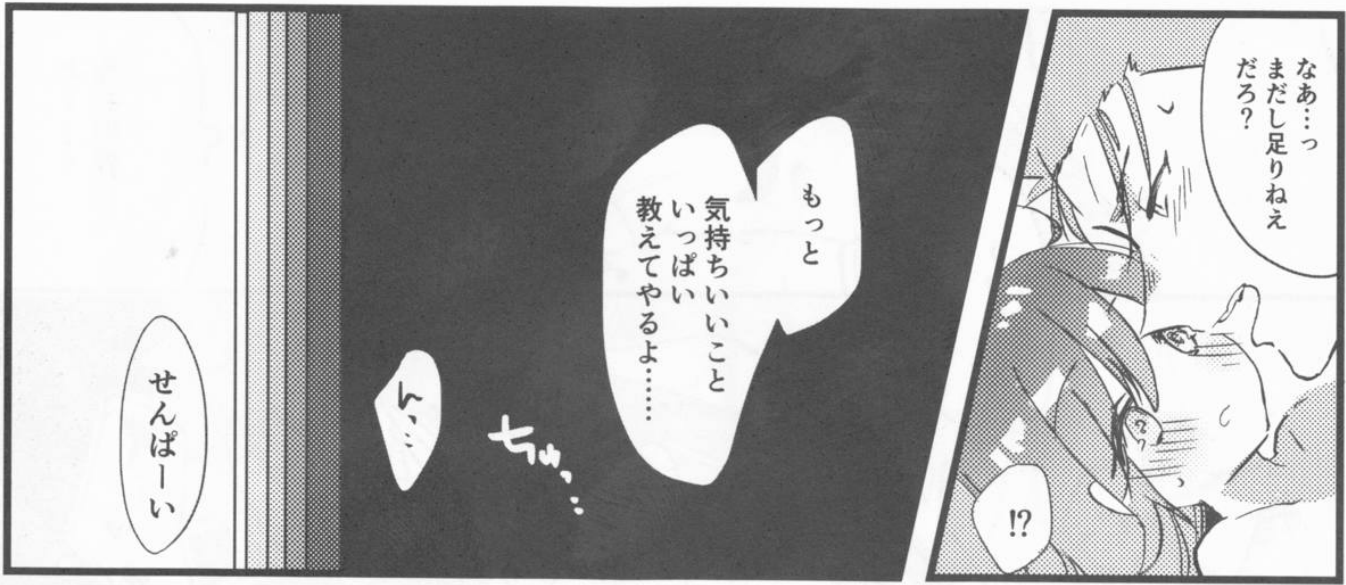 なあ…っ
まだし足りねえ
だろ？
!?
もっと
気持ちいいこと
いっぱい
教えてやるよ……
ちゅっ…
んっ…
せんぱーい